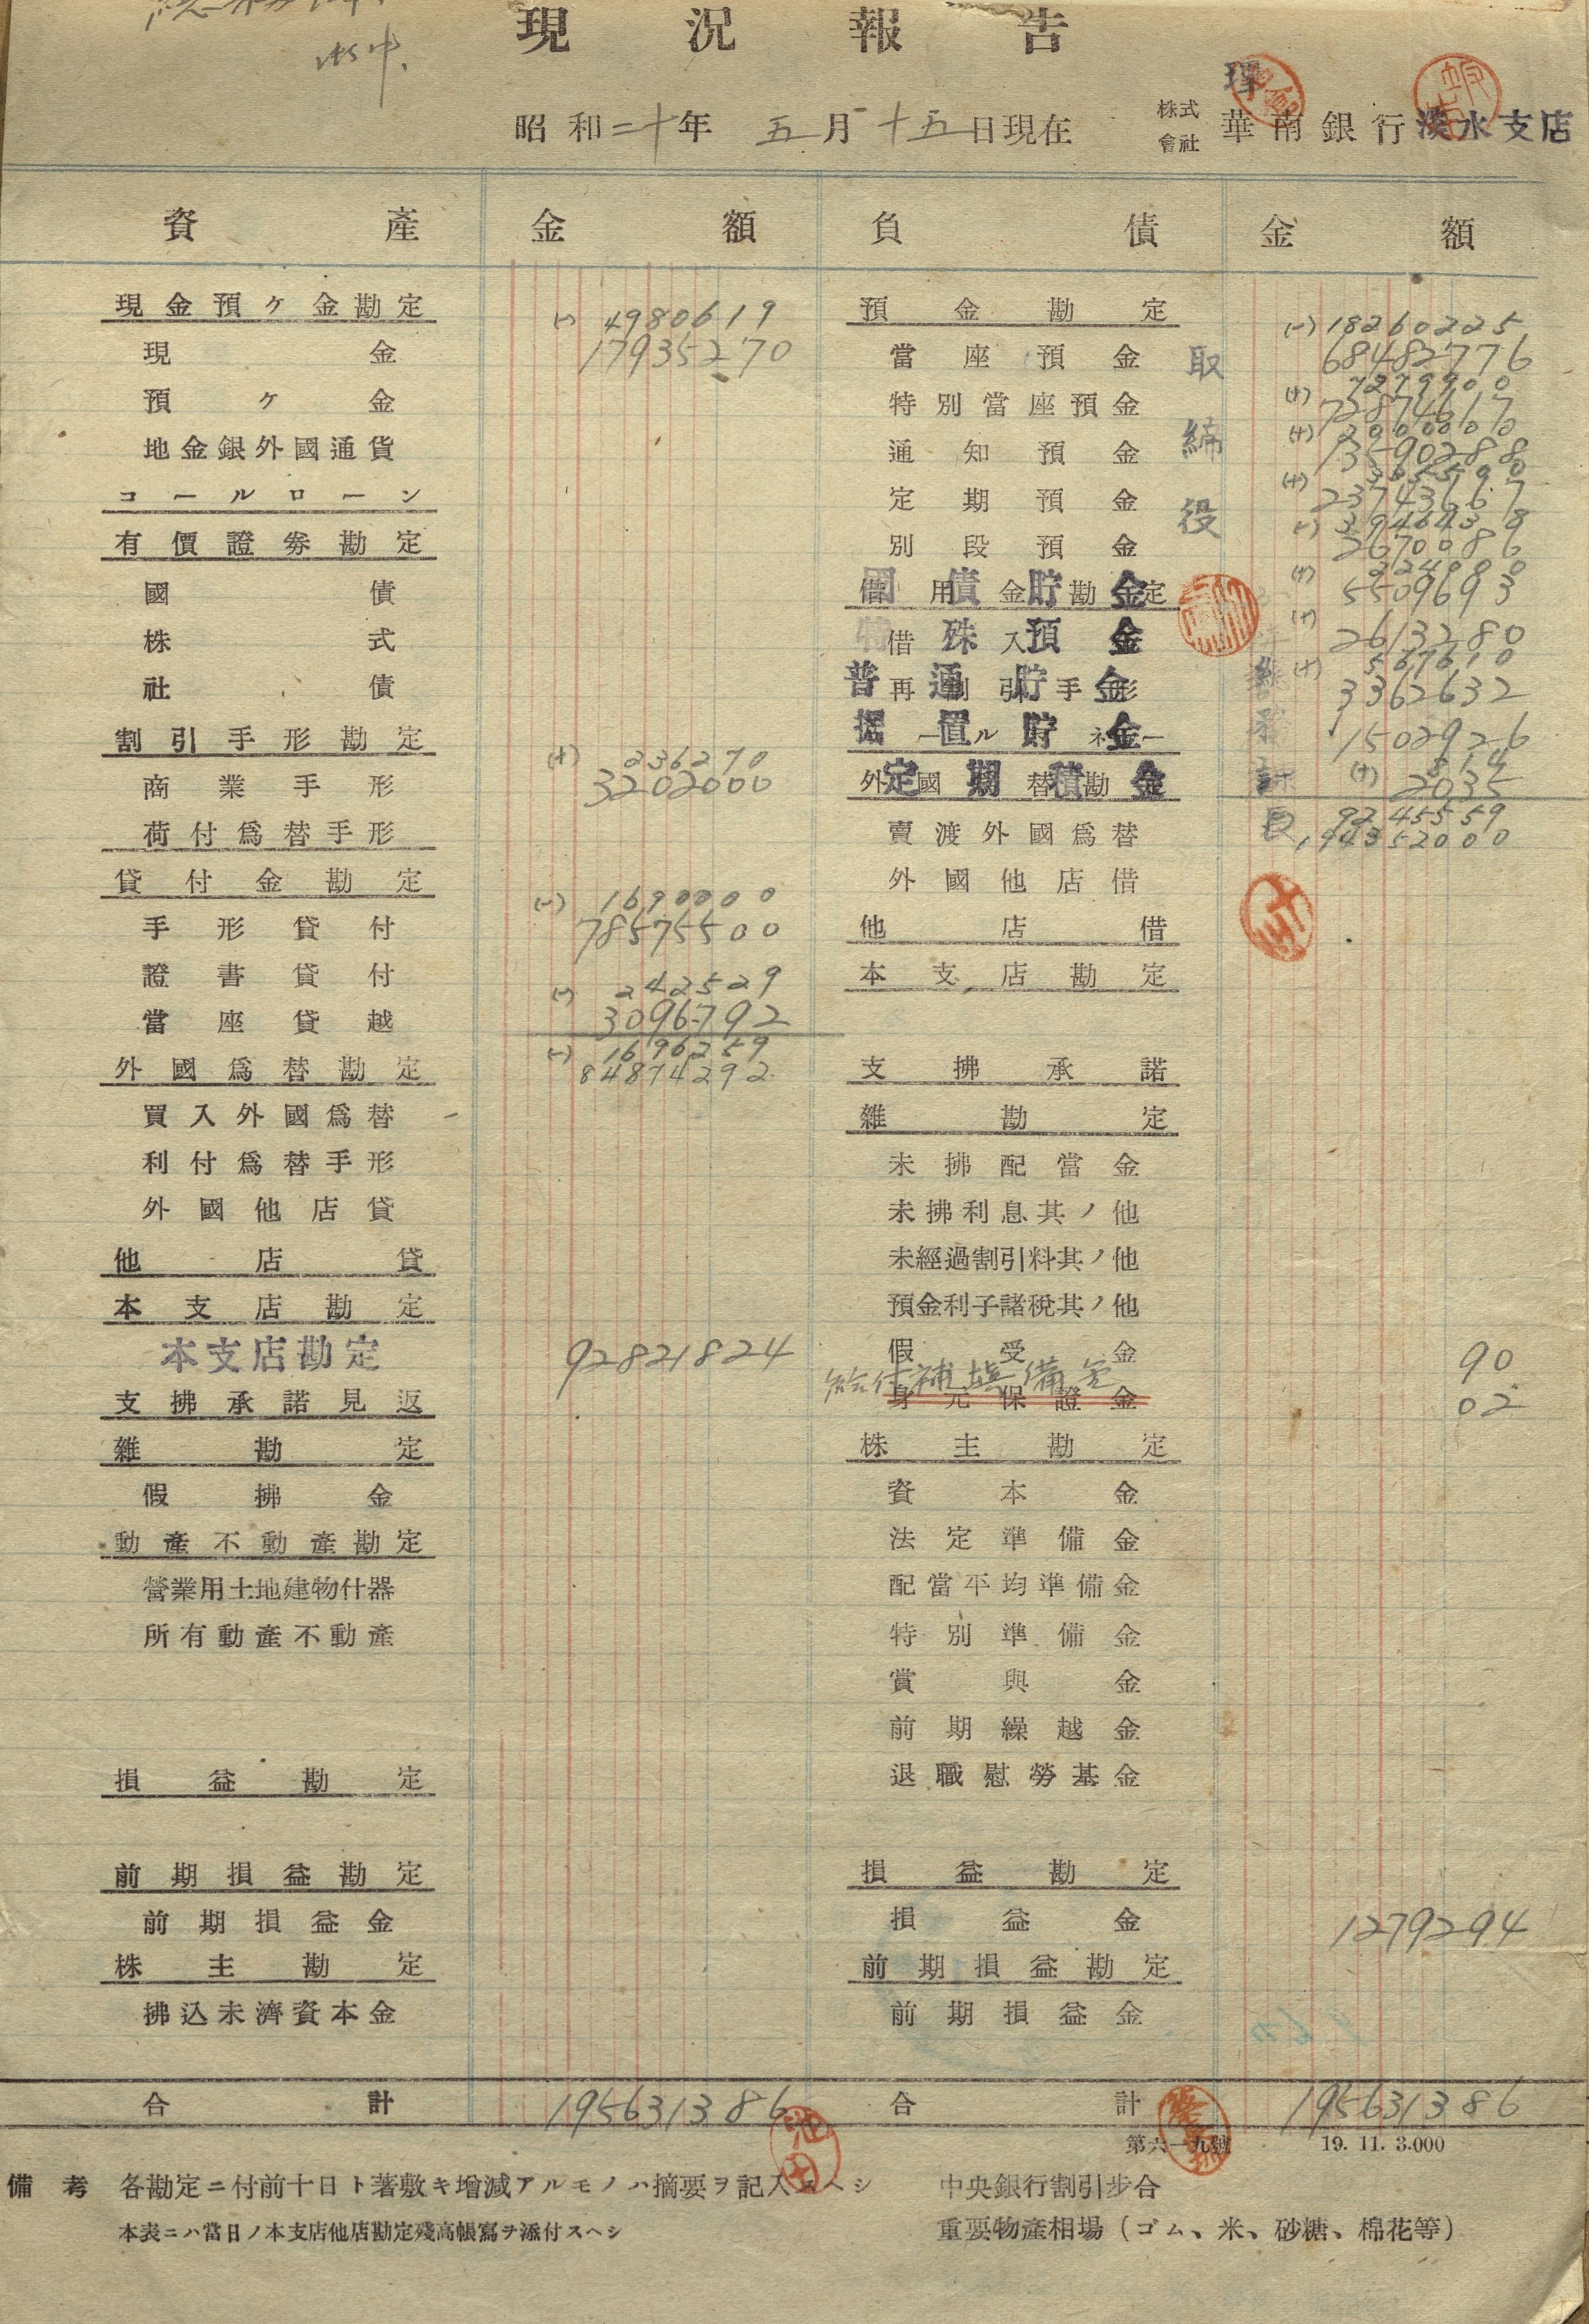 現況報告
昭和二十年 五月十五日現在
株式會社 華南銀行淡水支店
資產 金額 負債 金額
現金預ケ金勘定 (-) 4980619
現金 17935270
預ケ金
地金銀外國通貨
コールローン
有價證券勘定
國債
株式
社債
割引手形勘定
(+) 236270
商業手形 3202000
荷付爲替手形
貸付金勘定
(-) 1690000
手形貸付 78575500
證書貸付
(-) 242529
當座貸越 3096792
(-) 1696259
外國爲替勘定 84874292
買入外國爲替
利付爲替手形
外國他店貸
他店貸
本支店勘定
本支店勘定 92821824
支拂承諾見返
雜勘定
假拂金
動產不動產勘定
營業用土地建物什器
所有動產不動產
損益勘定
前期損益勘定
前期損益金
株主勘定
拂込未濟資本金
合計 195631386
預金勘定 (-) 18260225
當座預金 68482776
(+) 7279900
特別當座預金 72874617
(+) 2000000
通知預金 13590288
(+)
定期預金 23743667
(-)
別段預金 2670086
(+)
國債貯金 5509693
借用金勘定
(+)
特殊預金 2613280
借入金
(+) 567610
普通貯金 3362632
再割引手形
据置貯金 1502926
コールマネー
(+)
定期積金 2035
外國爲替勘定
9245559
賣渡外國爲替 194352000
外國他店借
他店借
本支店勘定
支拂承諾
雜勘定
未拂配當金
未拂利息其ノ他
未經過割引料其ノ他
預金利子諸稅其ノ他
假受金 90
給付補塡備金 02
身元保證金
株主勘定
資本金
法定準備金
配當平均準備金
特別準備金
賞與金
前期繰越金
退職慰勞基金
損益勘定
損益金 1279294
前期損益勘定
前期損益金
合計 195631386
取締役
總務課長
第六一九號 19. 11. 3.000
備考 各勘定ニ付前十日ト著敷キ增減アルモノハ摘要ヲ記入スヘシ
本表ニハ當日ノ本支店他店勘定殘高帳寫ヲ添付スヘシ
中央銀行割引步合
重要物產相場（ゴム、米、砂糖、棉花等）